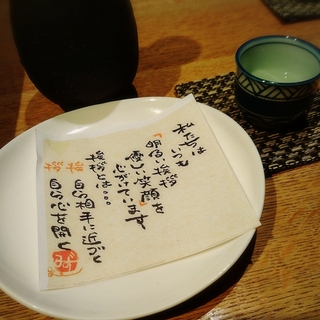 私たちは
いつも
「明るい挨拶
優しい笑顔」を
心がけています
挨拶とは。。。
挨 自ら相手に近づくと
拶 自ら心を開く